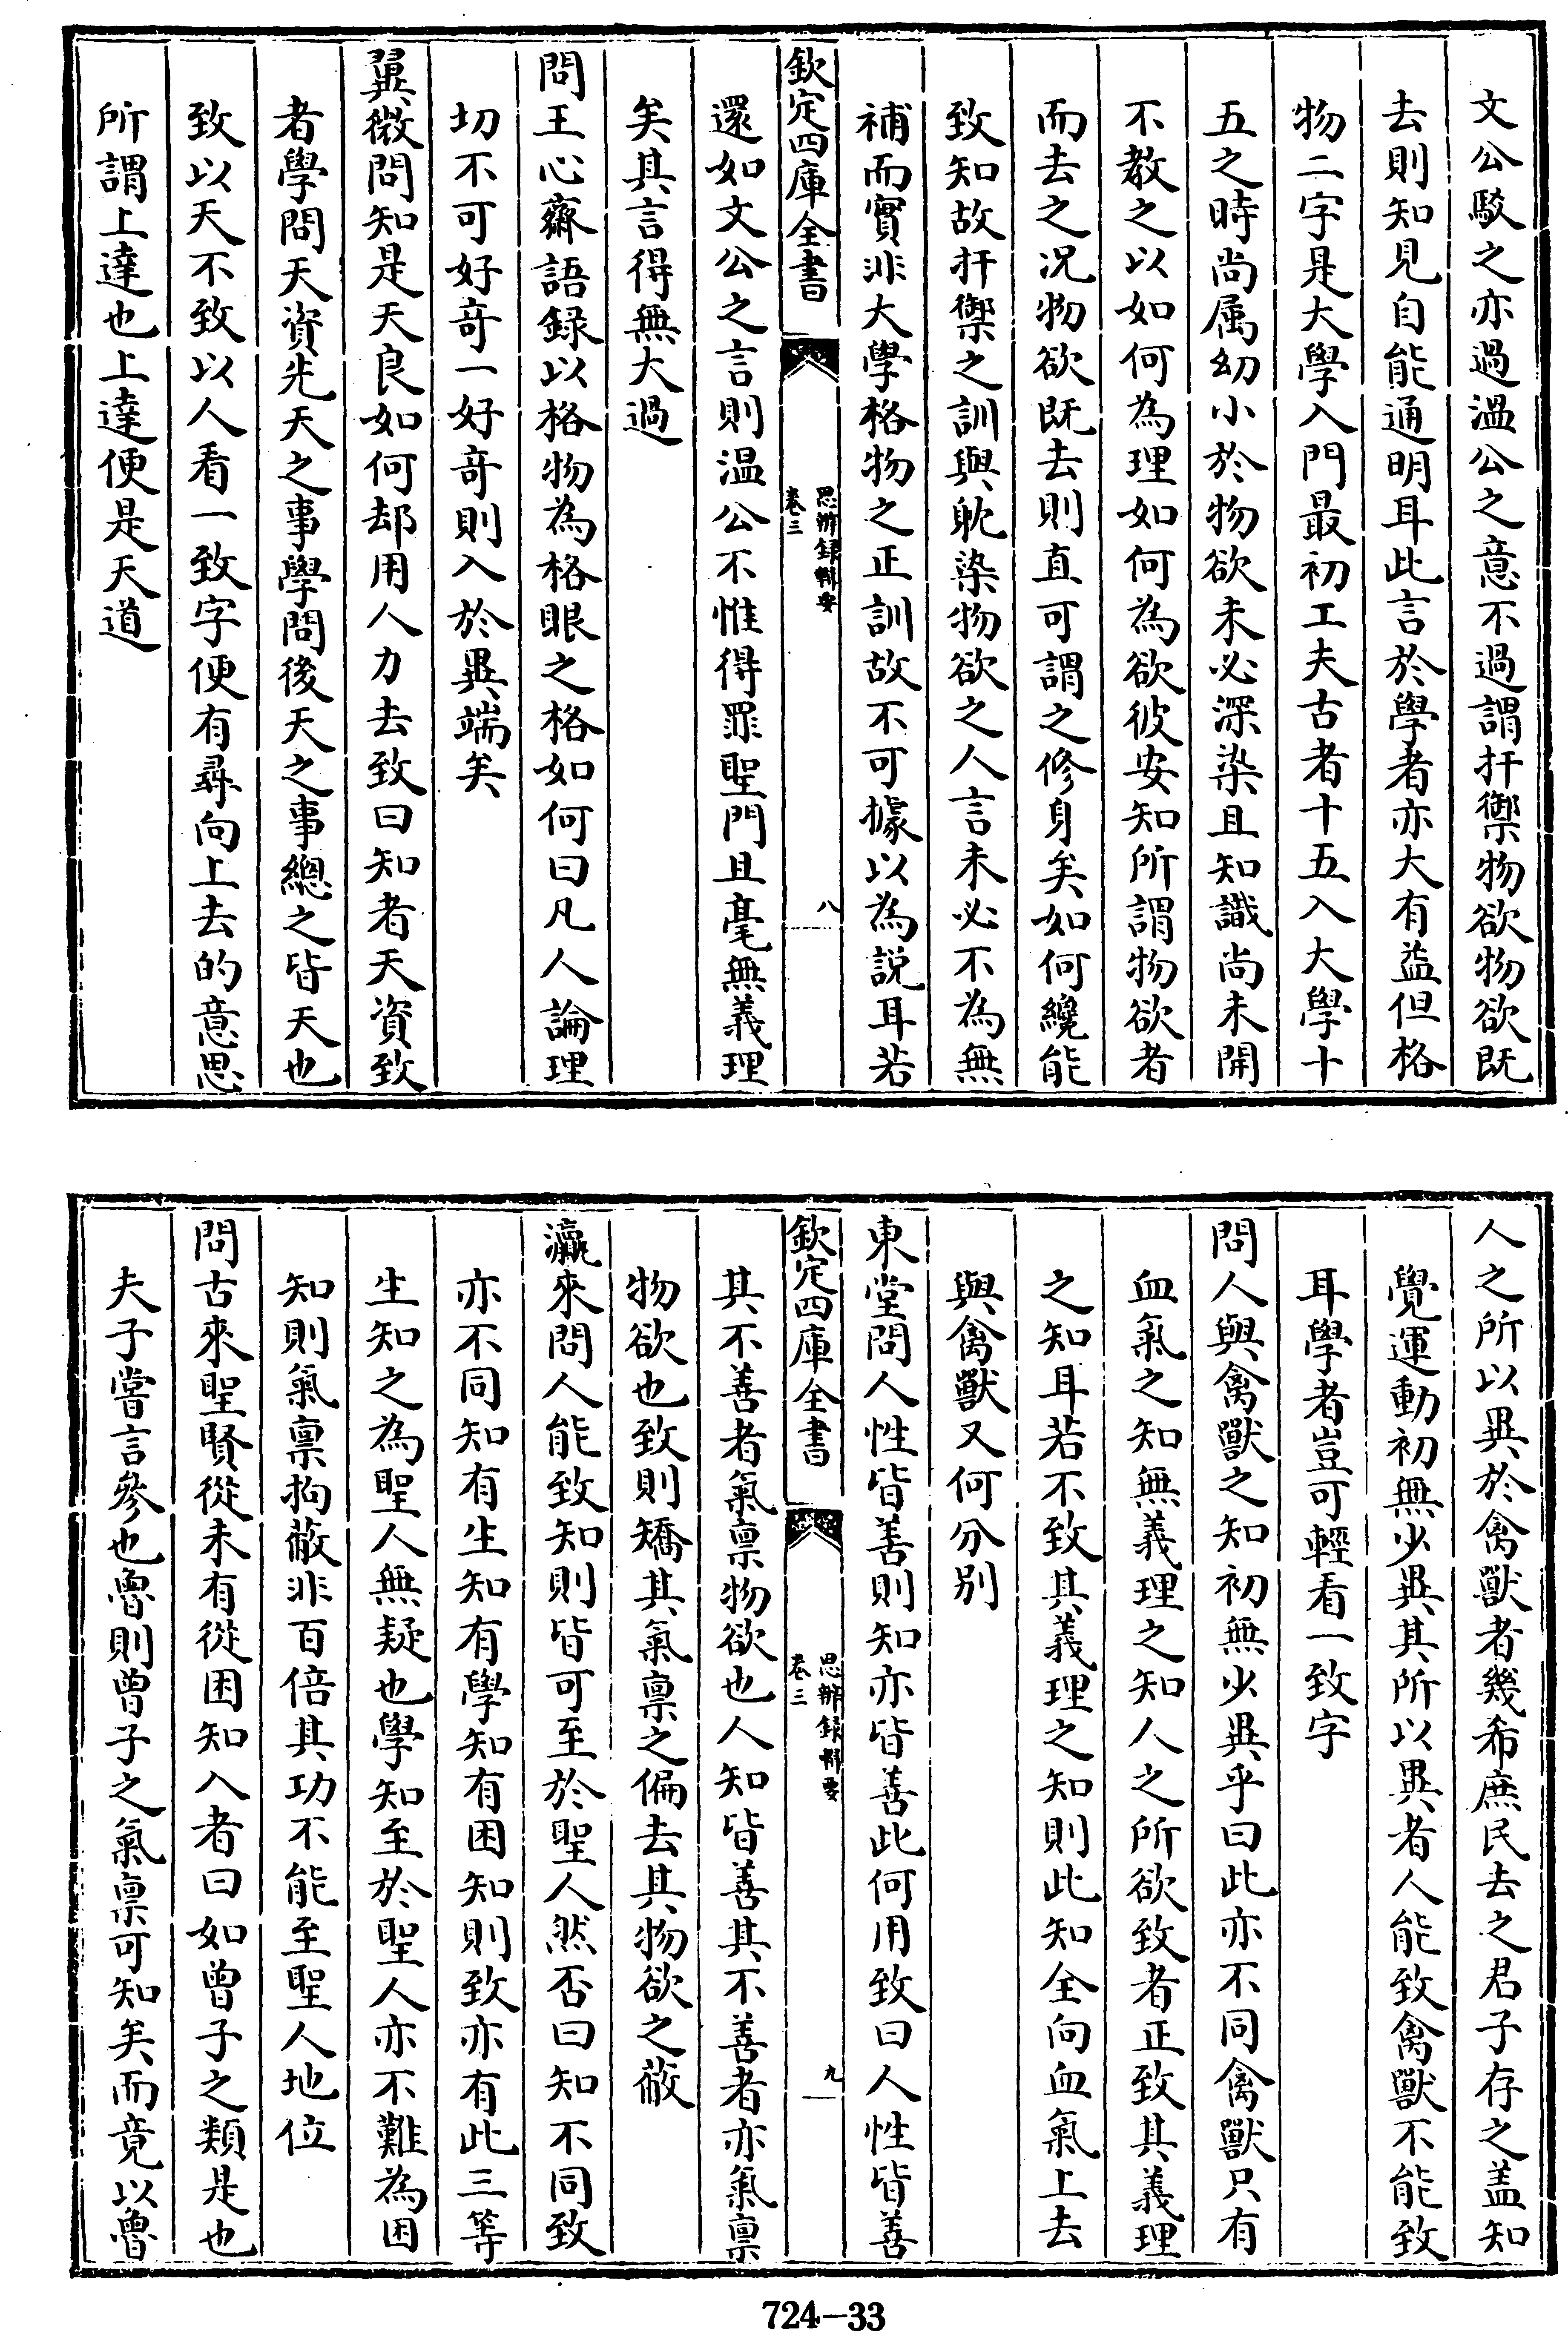 文公駁之亦過溫公之意不過謂扞禦物欲物欲既
去則知見自能通明耳此言於學者亦大有益但格
物二字是大學入門最初工夫古者十五入大學十
五之時尚属幼小於物欲未必深染且知識尚未開
不教之以如何為理如何為欲彼安知所謂物欲者
而去之况物欲既去則直可謂之修身矣如何纔能
致知故扞禦之訓與躭染物欲之人言未必不為無
補而實非大學格物之正訓故不可據以為説耳若
欽定四庫全書
思辨録輯要
卷三
八
還如文公之言則温公不惟得罪聖門且毫無義理
矣其言得無大過
問王心齋語録以格物為格眼之格如何曰凡人論理
切不可好竒一好竒則入於異端矣
翼微問知是天良如何却用人力去致曰知者天資致
者學問天資先天之事學問後天之事總之皆天也
致以天不致以人看一致字便有尋向上去的意思
所謂上達也上達便是天道
人之所以異於禽獸者幾希庶民去之君子存之盖知
覺運動初無少異其所以異者人能致禽獸不能致
耳學者豈可輕看一致字
問人與禽獸之知初無少異乎曰此亦不同禽獸只有
血氣之知無義理之知人之所欲致者正致其義理
之知耳若不致其義理之知則此知全向血氣上去
與禽獸又何分别
東堂問人性皆善則知亦皆善此何用致曰人性皆善
欽定四庫全書
思辨録輯要
卷三
九
其不善者氣禀物欲也人知皆善其不善者亦氣禀
物欲也致則矯其氣禀之偏去其物欲之蔽
瀛來問人能致知則皆可至於聖人然否曰知不同致
亦不同知有生知有學知有困知則致亦有此三等
生知之為聖人無疑也學知至於聖人亦不難為困
知則氣禀拘蔽非百倍其功不能至聖人地位
問古來聖賢從未有從困知入者曰如曾子之類是也
夫子嘗言參也魯則曾子之氣禀可知矣而竟以魯
724-33